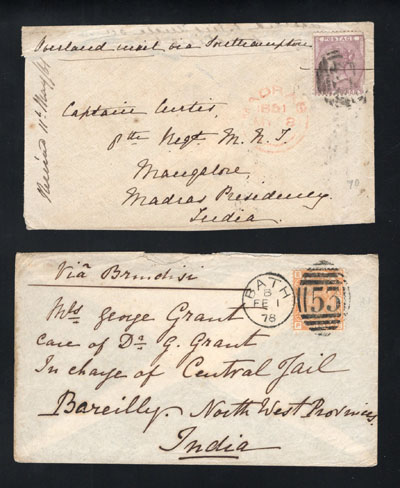 Overland mail via Southampton
POSTAGE
1861
Captain Curtis,
8th Regt M. N. I
Mangalore,
Madras Presidency
India
70
Viâ Brindisi
BATH
B
FE 1
78
55
Mrs George Grant
care of Dr G. Grant
In charge of Central Jail
Bareilly North West Provinces
India